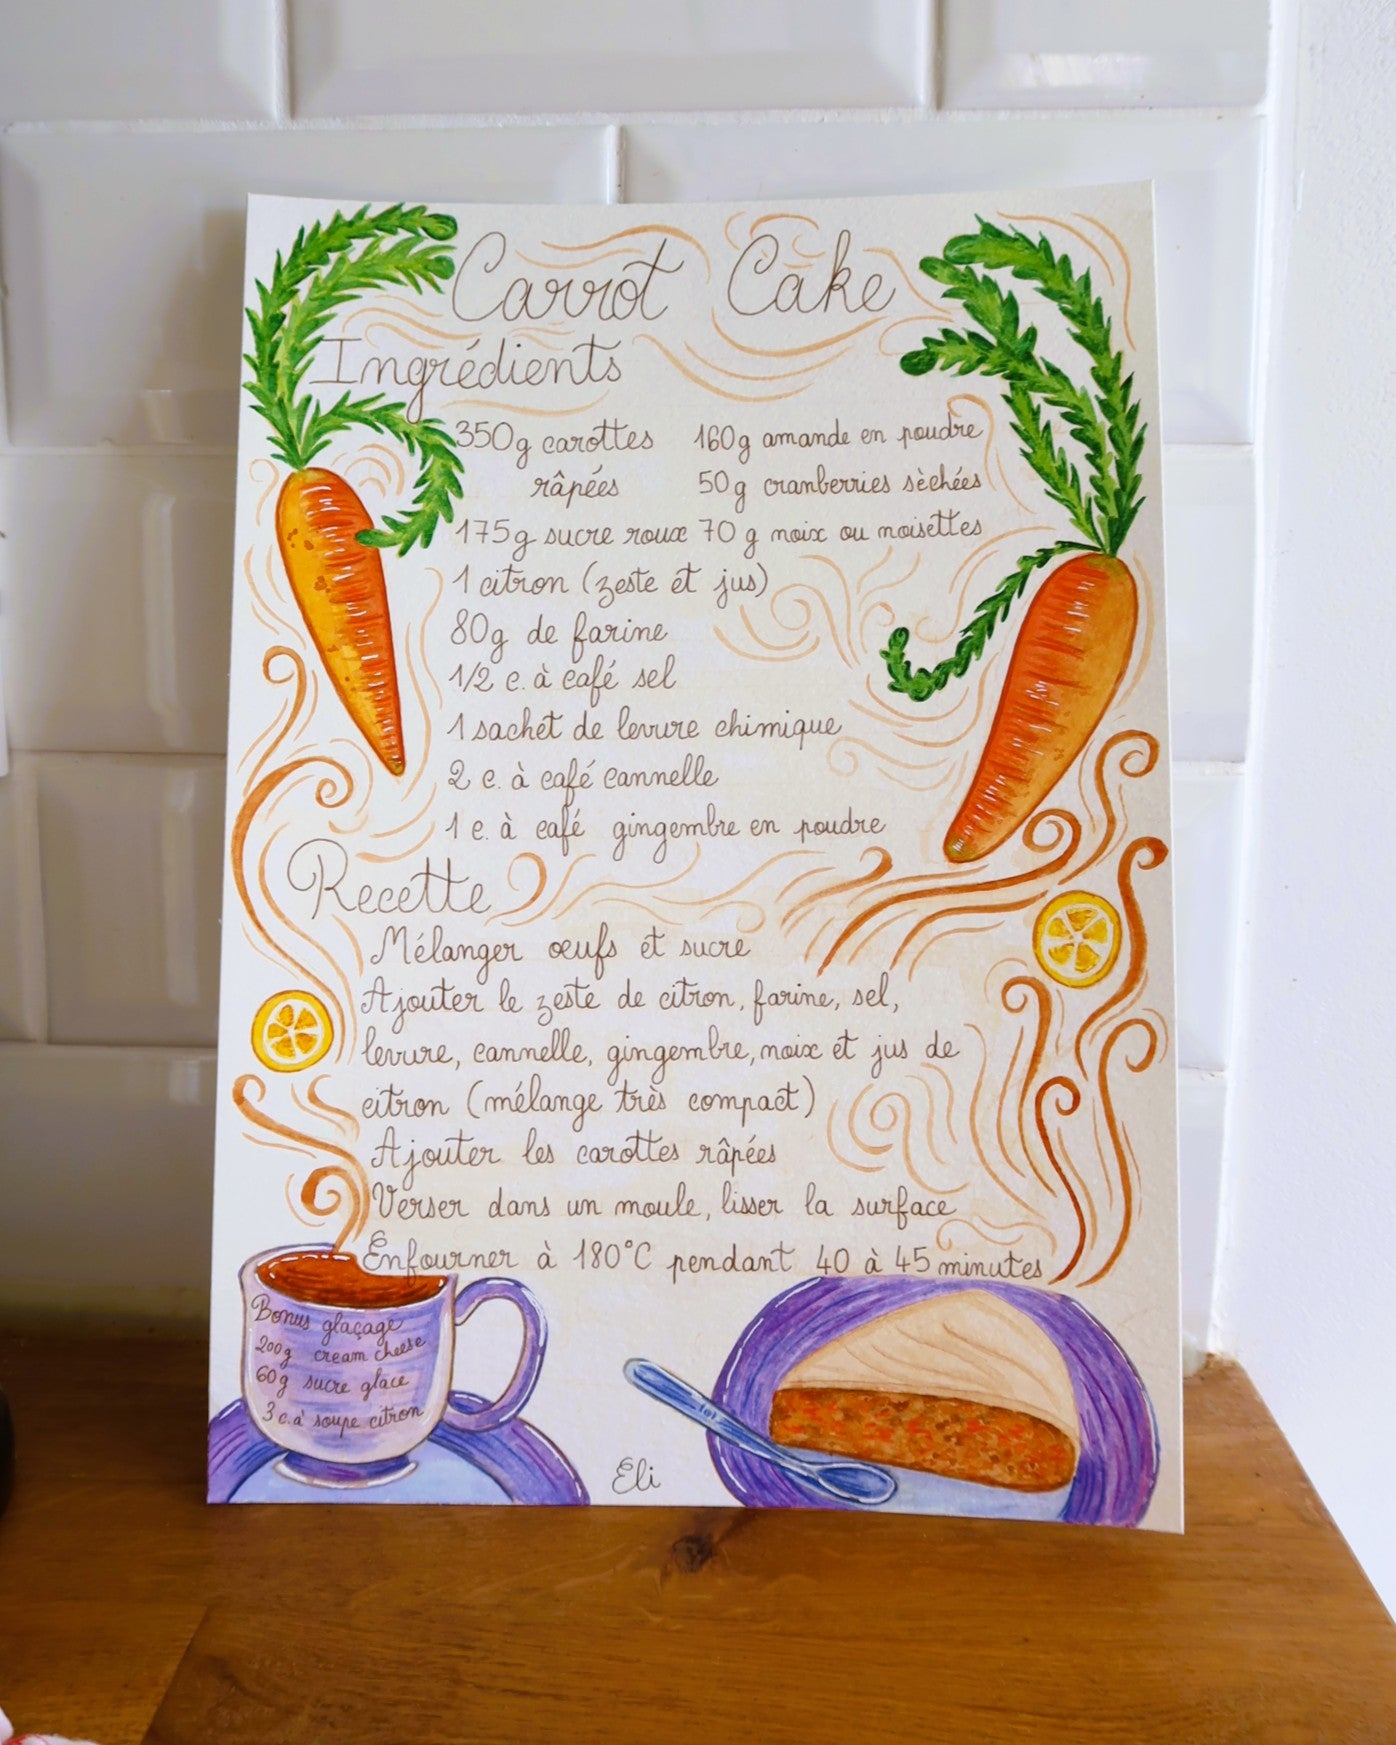 Carrot Cake
Ingrédients
350g carottes râpées
160g amande en poudre
50g cranberries sèchées
175g sucre roux
70 g noix ou noisettes
1 citron (zeste et jus)
80g de farine
1/2 c. à café sel
1 sachet de levure chimique
2 c. à café cannelle
1 c. à café gingembre en poudre
Recette
Mélanger œufs et sucre
Ajouter le zeste de citron, farine, sel,
levure, cannelle, gingembre, noix et jus de
citron (mélange très compact)
Ajouter les carottes râpées
Verser dans un moule, lisser la surface
Enfourner à 180°C pendant 40 à 45 minutes
Bonus glaçage
200g cream cheese
60g sucre glace
3 c. à soupe citron
Eli